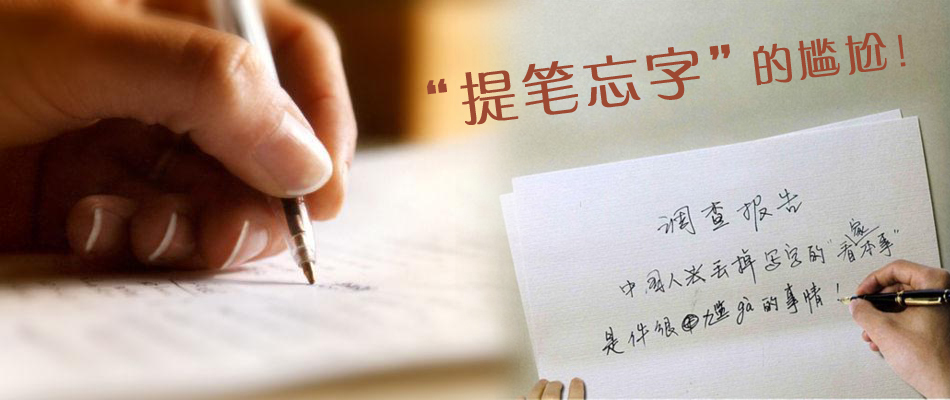 “提笔忘字”的尴尬！
调查报告
中国人丢掉写字的“看家本事”
是件很尴gà的事情！